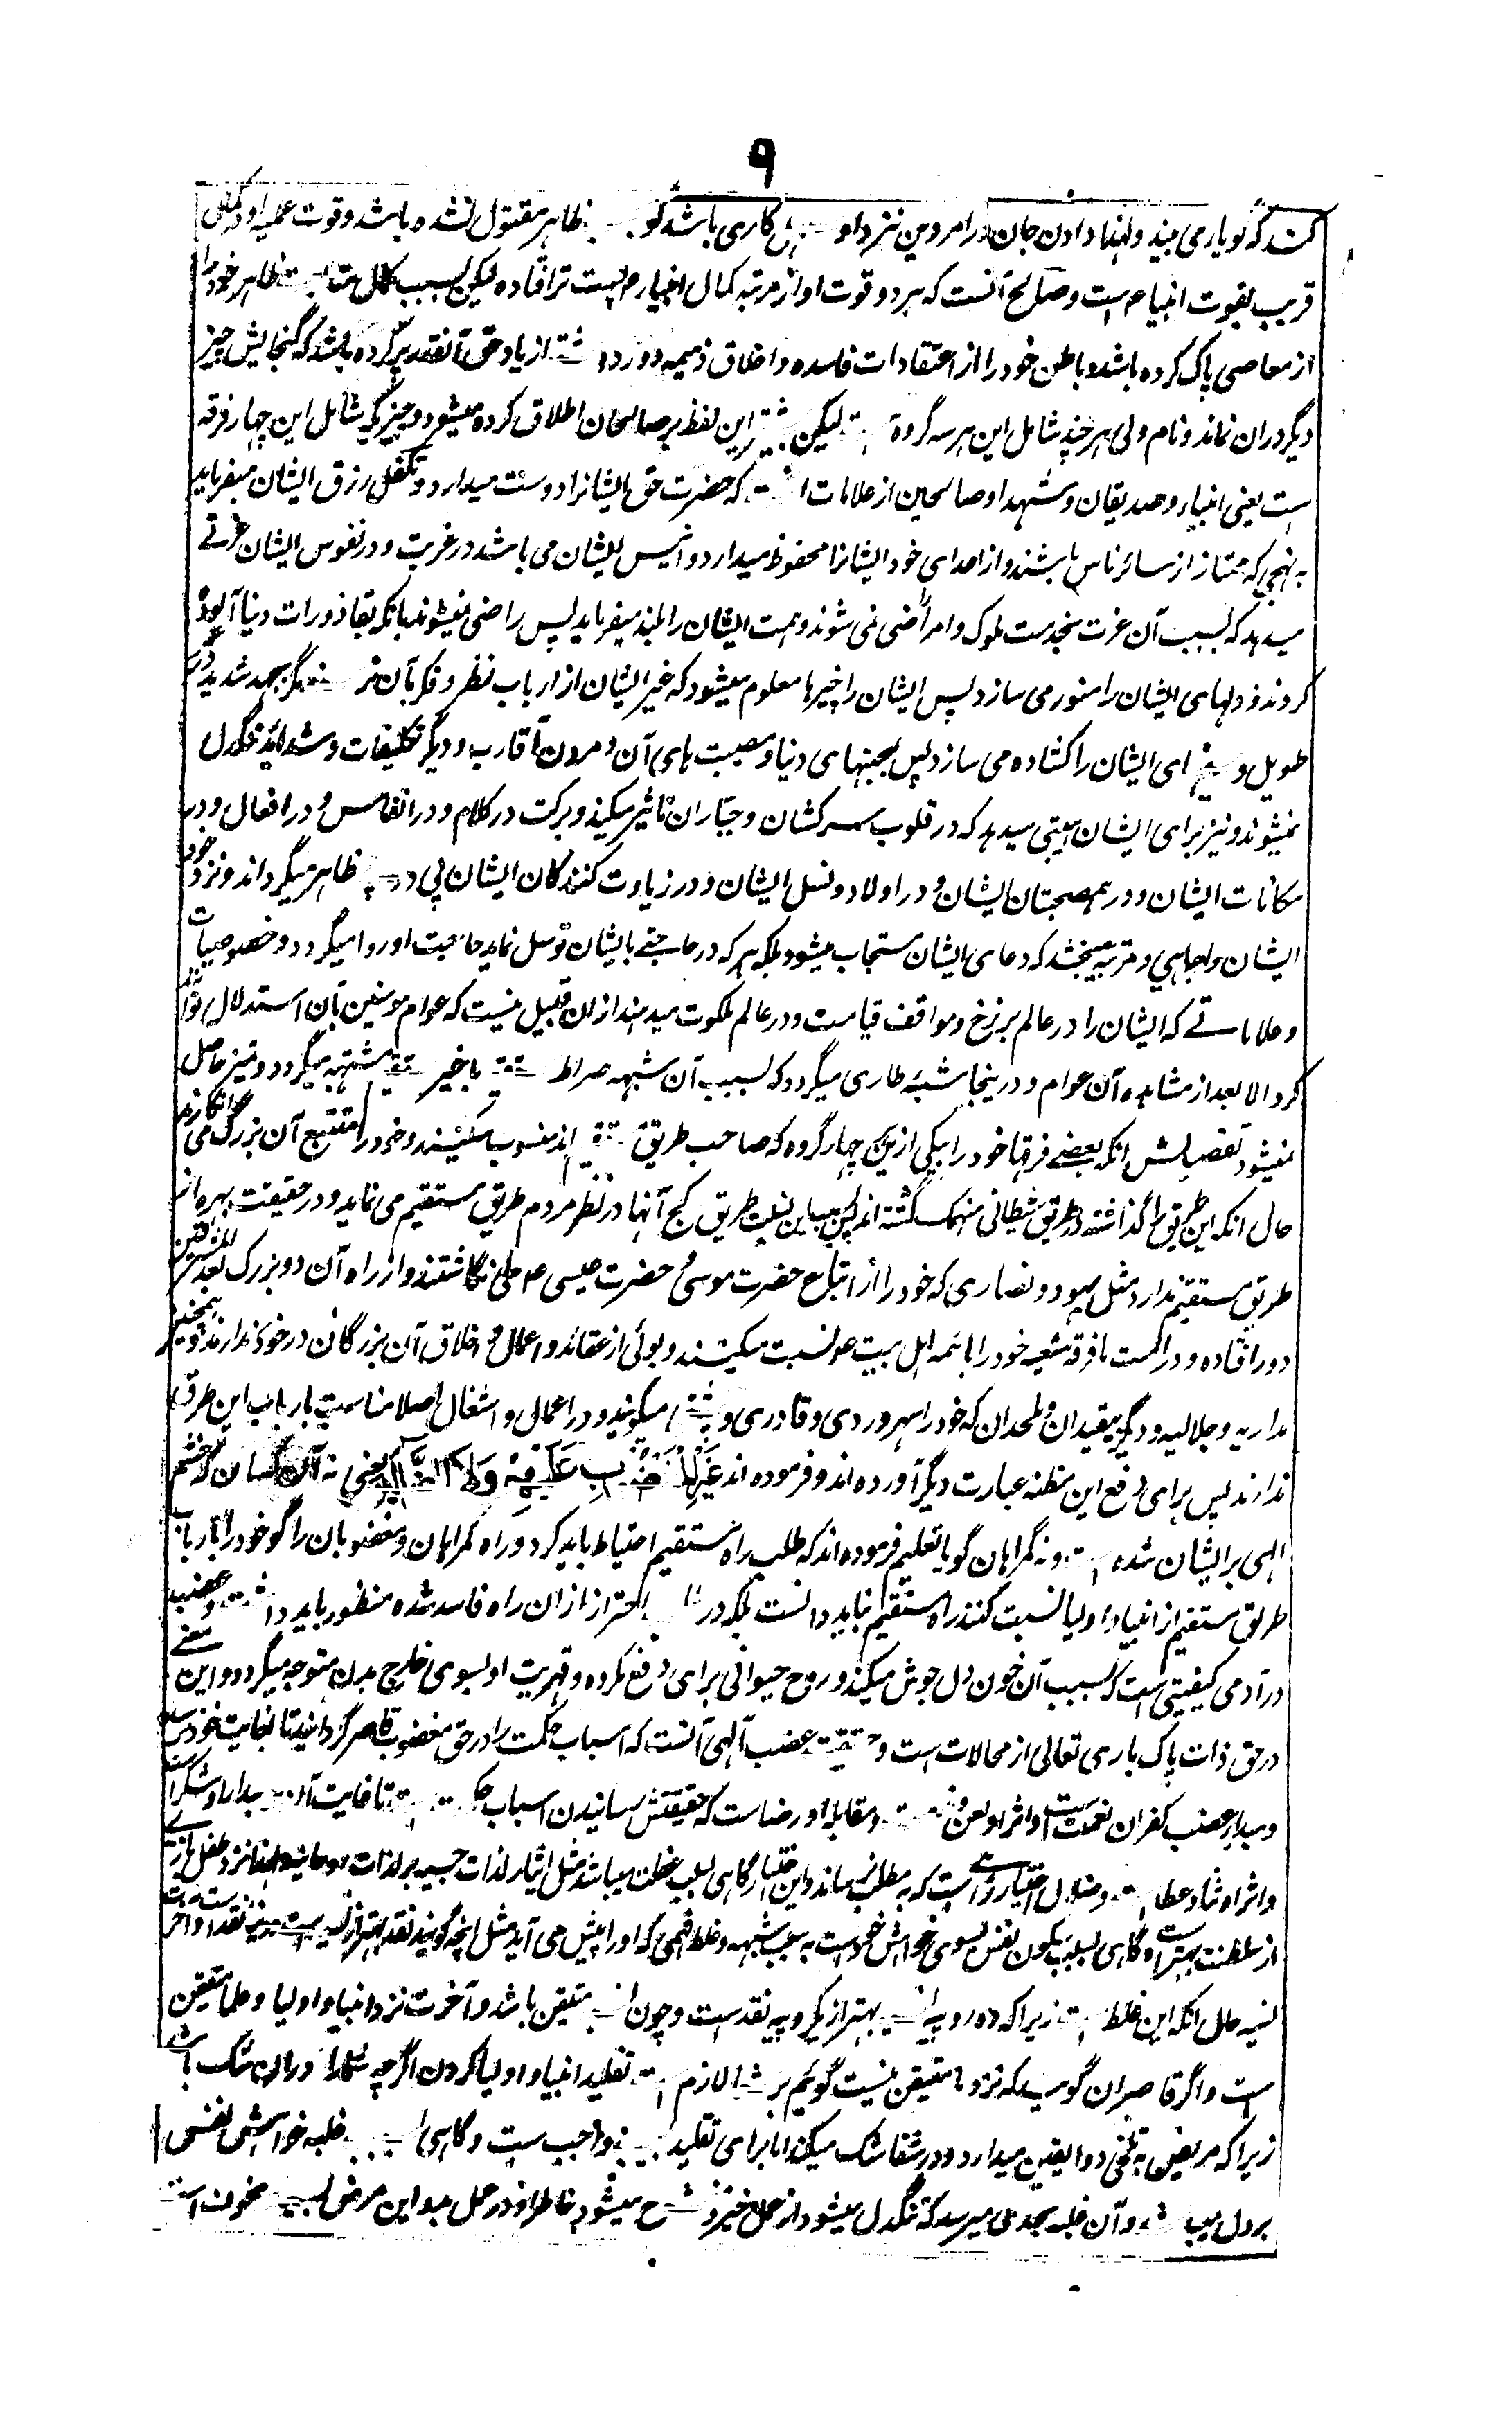 ۹
کند که گویا می بیند و لهذا دادن جان در امر دین نزد او کاری باشد گو بظاهر مقتول نشده باشد و قوت عملیه او در
قریب بقوت انبیاء است و صالح آنست که هر دو قوت او از مرتبه کمال انبیا پست تر افتاده لیکن بسبب کمال متابعت ظاهر خود را
از معاصی پاک کرده باشد و باطن خود را از اعتقادات فاسده و اخلاق ذمیمه دور داشته از یاد حق آنقدر پر کرده باشد که گنجایش چیز
دیگر دران نماند و نام ولی هر چند شامل این هر سه گروه است لیکن بیشتر این لفظ بر صالحان اطلاق کرده میشود و چیزیکه شامل این چهار فرقه
است یعنی انبیاء و صدیقان و شهدا و صالحین از علامات که حضرت حق ایشانرا دوست میدارد و تکفل رزق ایشان میفرماید
به نهجی که ممتاز از سائر ناس باشند و از اعدای خود ایشانرا محفوظ میدارد و انیس ایشان می باشد در غربت و در نفوس ایشان عزتے
میدهد که بسبب آن عزت بخدمت ملوک و امرا راضی نمی شوند و همت ایشان را بلند میفرماید پس راضی نمیشوند بانکه بقاذورات دنیا آلوده
گردند و دلهای ایشان را منور می سازد پس ایشان را چیزها معلوم میشود که غیر ایشان از ارباب نظر و فکر بآن نرسند مگر بجهد شدید و
طویل و سینه های ایشان را کشاده می سازد پس بمحنتهای دنیا و مصیبت های آن و مردن اقارب و دیگر تکلیفات و شدائد تنگدل
نمیشوند و نیز برای ایشان هیبتی میدهد که در قلوب سرکشان و جباران تاثیر میکند و برکت در کلام و در انفاس و در افعال و در
مکانات ایشان و در همصحبتان ایشان و در اولاد و نسل ایشان و در زیارت کنندگان ایشان پی در پی ظاهر میگرداند و نزد خود
ایشان را جاهی و مرتبه میبخشد که دعای ایشان مستجاب میشود بلکه هر که در حاجتے بایشان توسل نماید حاجت او روا میگردد و خصوصیات
و علاماتے که ایشان را در عالم برزخ و مواقف قیامت و در عالم ملکوت میدهند ازان قبیل نیست که عوام مومنین بآن استدلال توانند
کرد الا بعد از مشاهده آن عوام و درینجا شبهه طاری میگردد که بسبب آن شبهه صراط مستقیم با غیر مستقیم مشتبه میگردد و تمیز حاصل
نمیشود تفصیلش آنکه بعضے فرقها خود را بیکی ازین چهار گروه که صاحب طریق مستقیم اند منسوب میکنند و خود را متبع آن بزرگ می انگارند
حال آنکه این طریق را گذاشته در طریق شیطانی منهمک گشته اند پس باین نسبت طریق کج آنها در نظر مردم طریق مستقیم می نماید و در حقیقت بهره از
طریق مستقیم ندارد مثل یهود و نصاری که خود را از اتباع حضرت موسی و حضرت عیسی ع می انگاشتند و از راه آن دو بزرگ بعد المشرقین
دور افتاده و در امت ما فرقه شیعه خود را بائمه اهل بیت ع نسبت میکنند و بوئی از عقائد و اعمال و اخلاق آن بزرگان در خود ندارند و همچنین
مداریه و جلالیه و دیگر بیقیدان و ملحدان که خود را سهروردی و قادری و چشتی میگویند و در اعمال و اشغال اصلا مناسبت بارباب این طرق
ندارند پس برای دفع این مظنه عبارت دیگر آورده اند و فرموده اند غَيْرِ الْمَغْضُوبِ عَلَيْهِمْ وَلَا الضَّالِّينَ یعنی نه آن کسان که خشم
الهی بر ایشان شده است و نه گمراهان گویا تعلیم فرموده اند که طلب راه مستقیم احتیاط باید کرد و راه گمراهان و مغضوبان را گو خود را بارباب
طریق مستقیم از انبیاء و اولیا نسبت کنند راه مستقیم نباید دانست بلکه در احتراز ازان راه فاسد شده منظور باید داشت و غضب
در آدمی کیفیتی است که بسبب آن خون دل جوش میکند و روح حیوانی برای دفع مکروه و قهریت او بسوی خارج بدن متوجه میگردد و این معنے
در حق ذات پاک باری تعالی از محالات است و حقیقت غضب آلهی آنست که اسباب حکمت را در حق مغضوب قاصر گرداند تا بغایت خود نرسد
و مبدا غضب کفران نعمت است و اثر او لعن و مقابله او رضا است که حقیقتش رسانیدن اسباب حکمت است تا غایت آن
و اثر او ثنا و عطا است و ضلال اختیار راهی است که به مطلب نرساند و این اختیار گاهی بسبب غفلت میباشد مثل ایثار لذات حسیه بر لذات
از سلطنت بهتر است و گاهی بسبب بسوی خواهش خود است به سبب شبهه و غلط فهمی که او را پیش می آید مثل آنچه گویند نقد بهتر از نسیه است
نسیه حال آنکه این غلط است زیرا که ده روپیه نسیه بهتر از یکروپیه نقد است و چون نسیه متیقن باشد و آخرت نزد انبیا و اولیا و علما متیقن
است و اگر قاصران گویند که نزد ما متیقن نیست گوئیم بر شما لازم است تقلید انبیا و اولیا کردن اگرچه شما را دران شک باشد
زیرا که مریض به تلخی دوا یقین میدارد و در شفا شک میکند اما برای تقلید واجب است و گاهی غلبه خواهش نفس
بر دل میباشد و آن غلبه بحدی میرسد که تنگدل میشود از عمل خیر و میشود خاطر او در عمل بد و این مرض